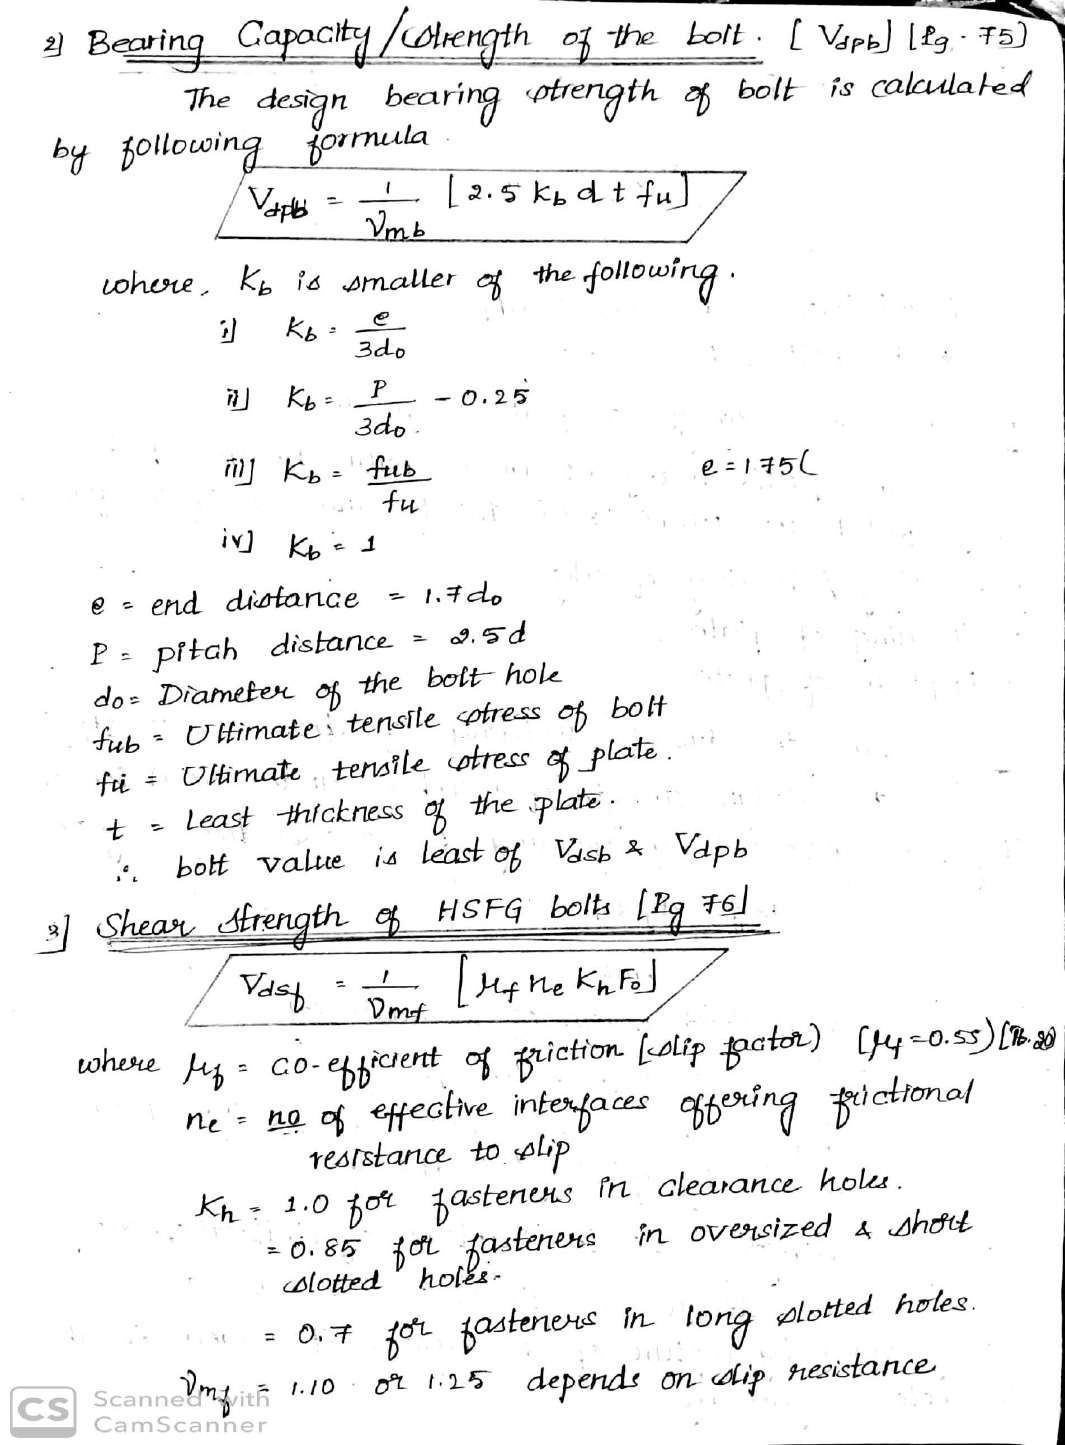 2] Bearing Capacity/strength of the bolt. [Vdpb] [Pg. 75]
The design bearing strength of bolt is calculated
by following formula
Vdpb = 1/γmb [2.5 Kb d t fu]
where, Kb is smaller of the following.
i] Kb = e/3do
ii] Kb = P/3do - 0.25
iii] Kb = fub/fu
e = 175(
iv] Kb = 1
e = end distance = 1.7do
P = pitch distance = 2.5d
do = Diameter of the bolt hole
fub = Ultimate tensile stress of bolt
fu = Ultimate tensile stress of plate.
t = Least thickness of the plate.
∴ bolt value is least of Vdsb & Vdpb
3] Shear Strength of HSFG bolts [Pg 76]
Vdsf = 1/γmf [μf ne Kh Fo]
where μf = co-efficient of friction [slip factor) (μf = 0.55) [Tb. 20
ne = no of effective interfaces offering frictional
resistance to slip
Kh = 1.0 for fasteners in clearance holes.
= 0.85 for fasteners in oversized & short
slotted holes.
= 0.7 for fasteners in long slotted holes.
γmf = 1.10 or 1.25 depends on slip resistance
CS Scanned with
CamScanner